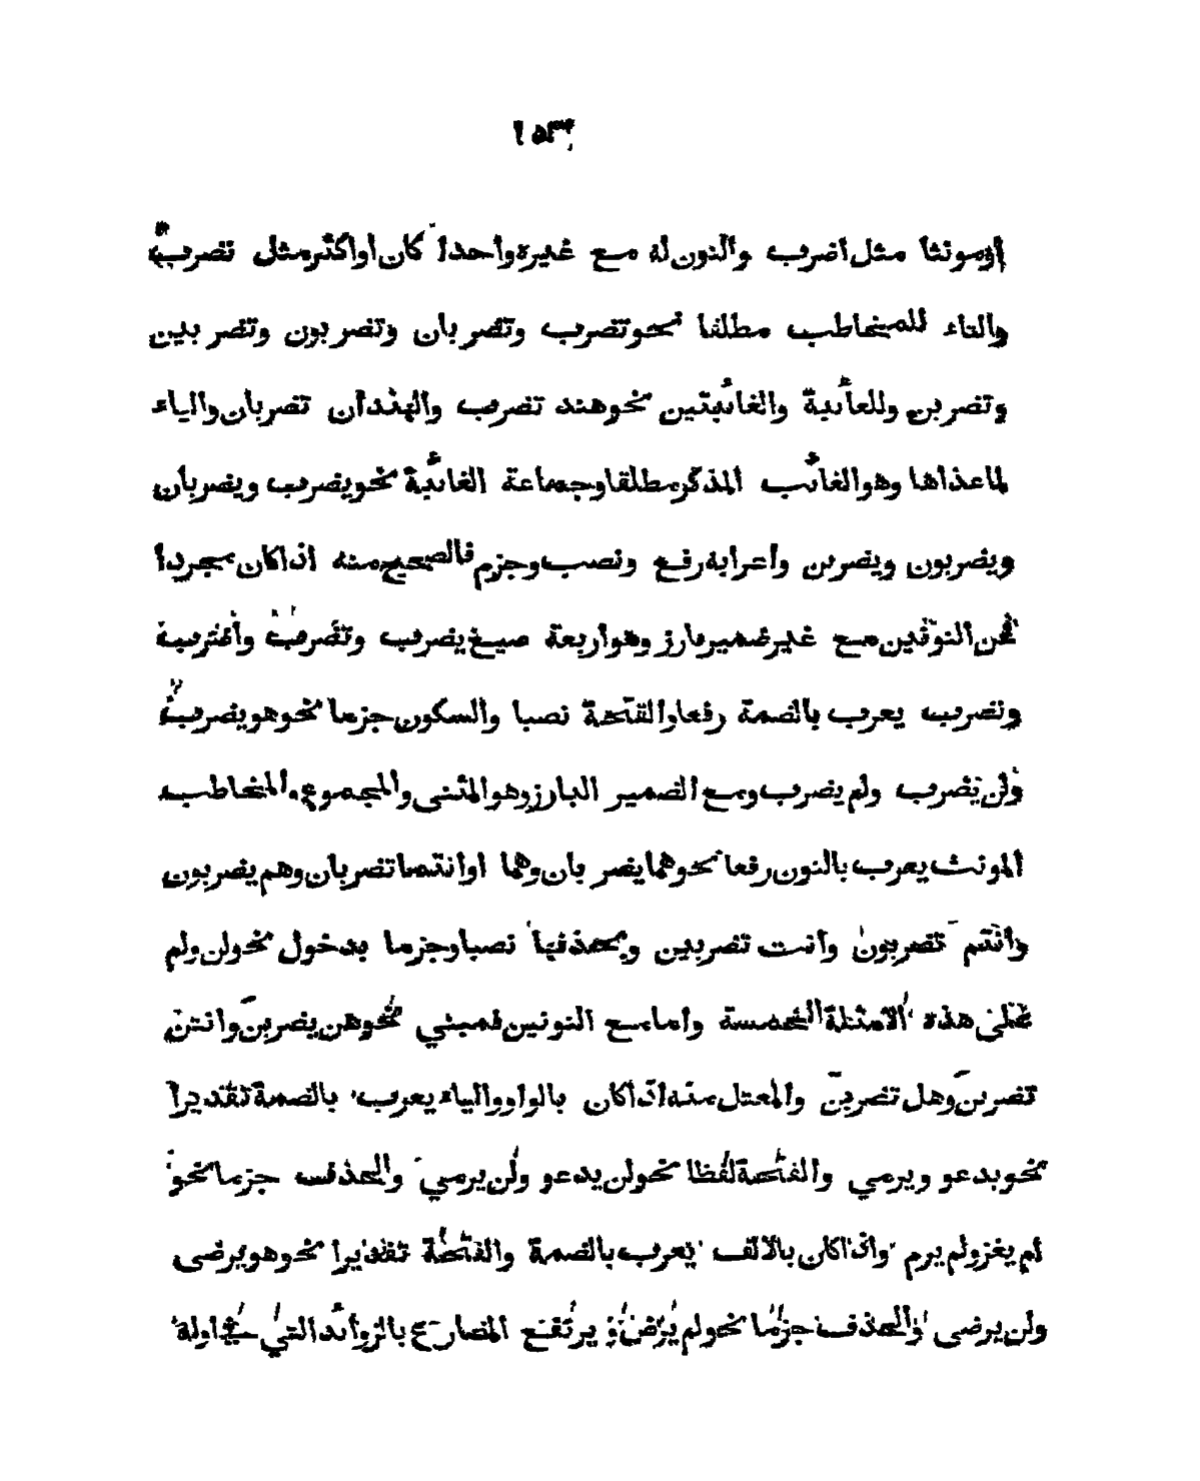 ١٥٣
اومونثا مثل اضرب والنون له مع غيره واحدا كان او اكثر مثل نضرب
والتاء للمخاطب مطلقا نحو تضرب وتضربان وتضربون وتضربين
وتضربن وللغائبة والغائبتين نحو هند تضرب والهندان تضربان والياء
لما عداها وهو الغائب المذكر مطلقا وجماعة الغائبة نحو يضرب ويضربان
ويضربون ويضربن واعرابه رفع ونصب وجزم فالصحيح منه اذا كان مجردا
عن النونين مع غير ضمير بارز وهو اربعة صيغ يضرب وتضرب واضرب
ونضرب يعرب بالضمة رفعا والفتحة نصبا والسكون جزما نحو هو يضرب
ولن يضرب ولم يضرب ومع الضمير البارز وهو المثنى والمجموع والمخاطب
المونث يعرب بالنون رفعا نحو هما يضربان وهما او انتما تضربان وهم يضربون
وانتم تضربون وانت تضربين وبحذفها نصبا وجزما بدخول نحو لن ولم
على هذه الامثلة الخمسة واما مع النونين فمبني نحو هن يضربن وانتن
تضربن وهل تضربن والمعتل منه اذا كان بالواو والياء يعرب بالضمة تقديرا
نحو يدعو ويرمي والفتحة لفظا نحو لن يدعو ولن يرمي والحذف جزما نحو
لم يغز ولم يرم واذا كان بالالف يعرب بالضمة والفتحة تقديرا نحو هو يرضى
ولن يرضى والحذف جزما نحو لم يرض و يرتفع المضارع بالزوائد التي في اوله